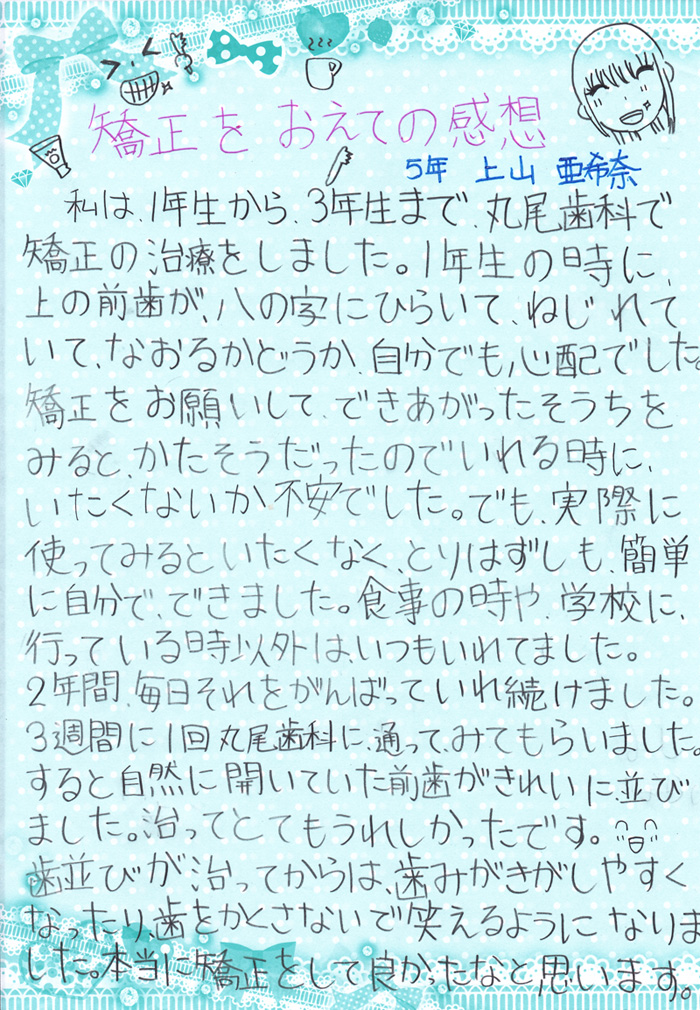 矯正をおえての感想
5年 上山 亜希奈
私は、1年生から、3年生まで、丸尾歯科で
矯正の治療をしました。1年生の時に、
上の前歯が、八の字にひらいて、ねじれて
いて、なおるかどうか、自分でも心配でした。
矯正をお願いして、できあがったそうちを
みると、かたそうだったのでいれる時に、
いたくないか不安でした。でも、実際に
使ってみるといたくなく、とりはずしも、簡単
に自分で、できました。食事の時や、学校に、
行っている時以外は、いつもいれてました。
2年間、毎日それをがんばっていれ続けました。
3週間に1回丸尾歯科に、通って、みてもらいました。
すると自然に開いていた前歯がきれいに、並び
ました。治ってとてもうれしかったです。
歯並びが治ってからは、歯みがきがしやすく
なったり、歯をかくさないで笑えるようになりま
した。本当に矯正をして良かったなと思います。